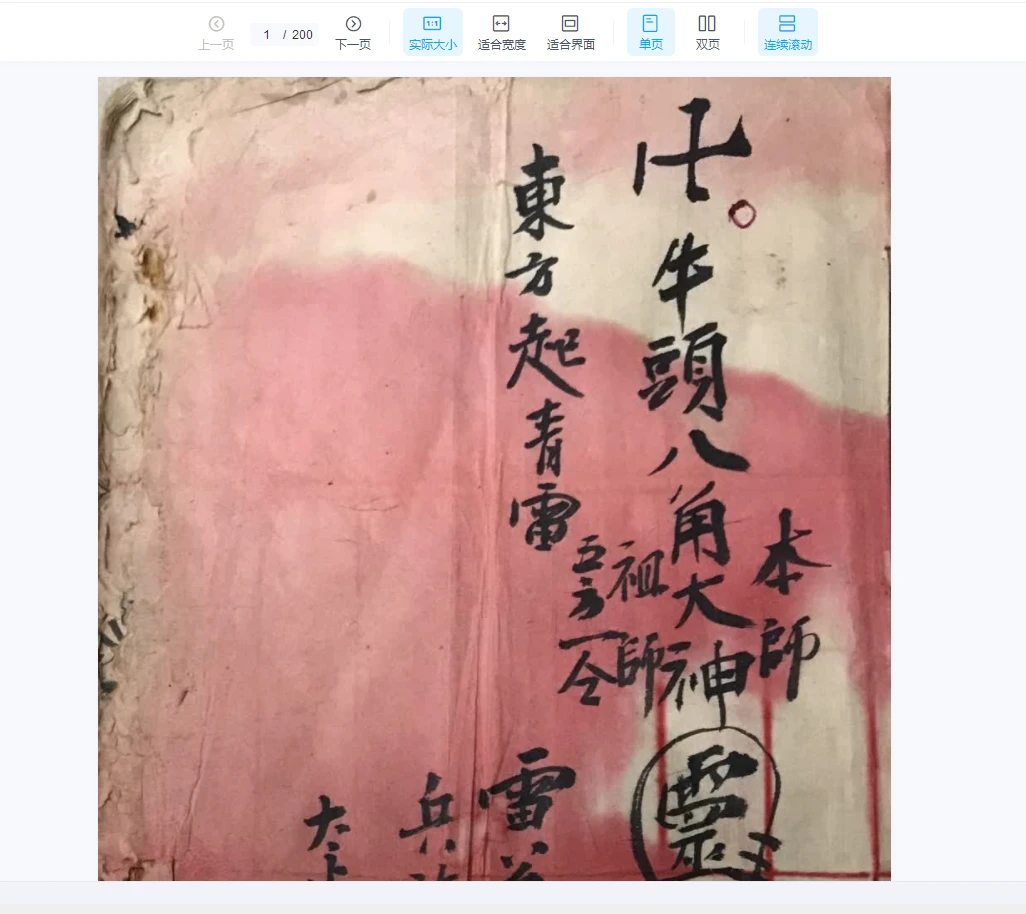 上一页
1 / 200
下一页
1:1
实际大小
适合宽度
适合界面
单页
双页
连续滚动
本師
牛頭八角大神
祖師
五方
令
東方起青雷
雷
兵
大上